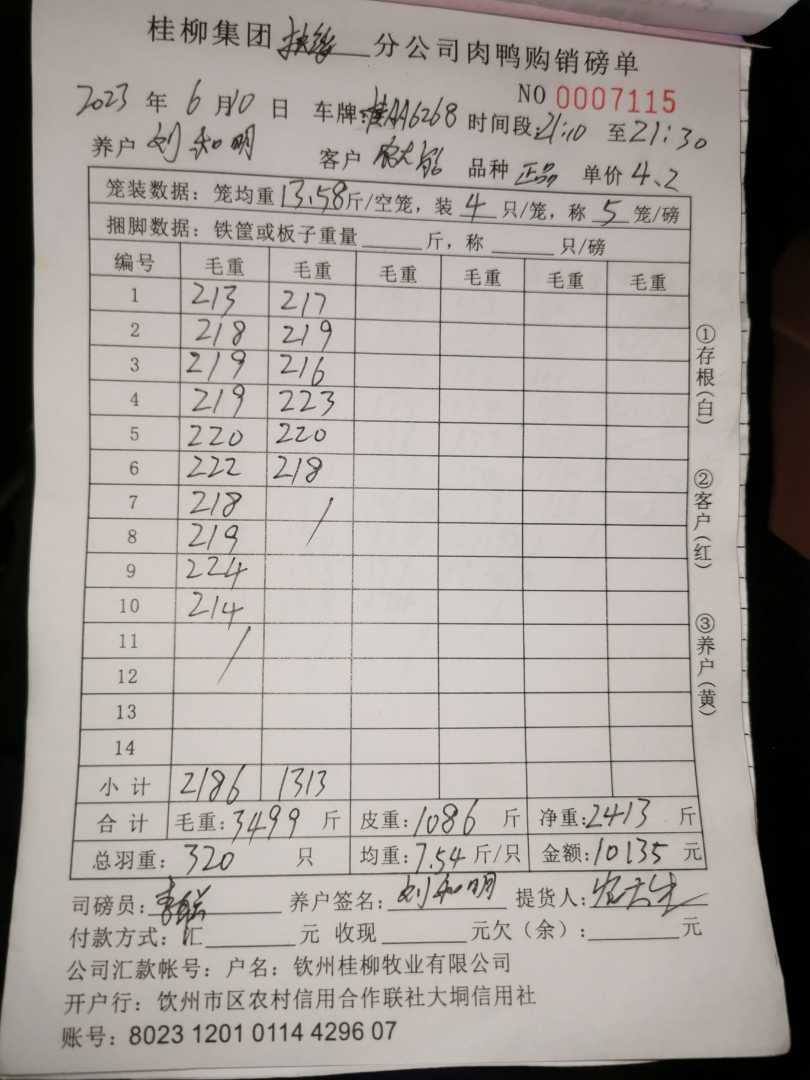 桂柳集团扶绥分公司肉鸭购销磅单
NO 0007115
2023年6月10日 车牌:桂AA6268 时间段:21:10至21:30
养户 刘和明 客户 品种 正品 单价 4.2
笼装数据：笼均重13.58斤/空笼，装4只/笼，称5笼/磅
捆脚数据：铁筐或板子重量______斤，称______只/磅
编号 毛重 毛重 毛重 毛重 毛重 毛重
1 213 217
2 218 219
3 219 216
4 219 223
5 220 220
6 222 218
7 218 /
8 219
9 224
10 214
11 /
12
13
14
小计 2186 1313
合计 毛重:3499斤 皮重:1086斤 净重:2413斤
总羽重:320只 均重:7.54斤/只 金额:10135元
司磅员: 养户签名:刘和明 提货人:
付款方式：汇______元 收现______元欠（余）:______元
公司汇款帐号：户名：钦州桂柳牧业有限公司
开户行：钦州市区农村信用合作联社大垌信用社
账号：8023 1201 0114 4296 07
①存根(白)
②客户(红)
③养户(黄)